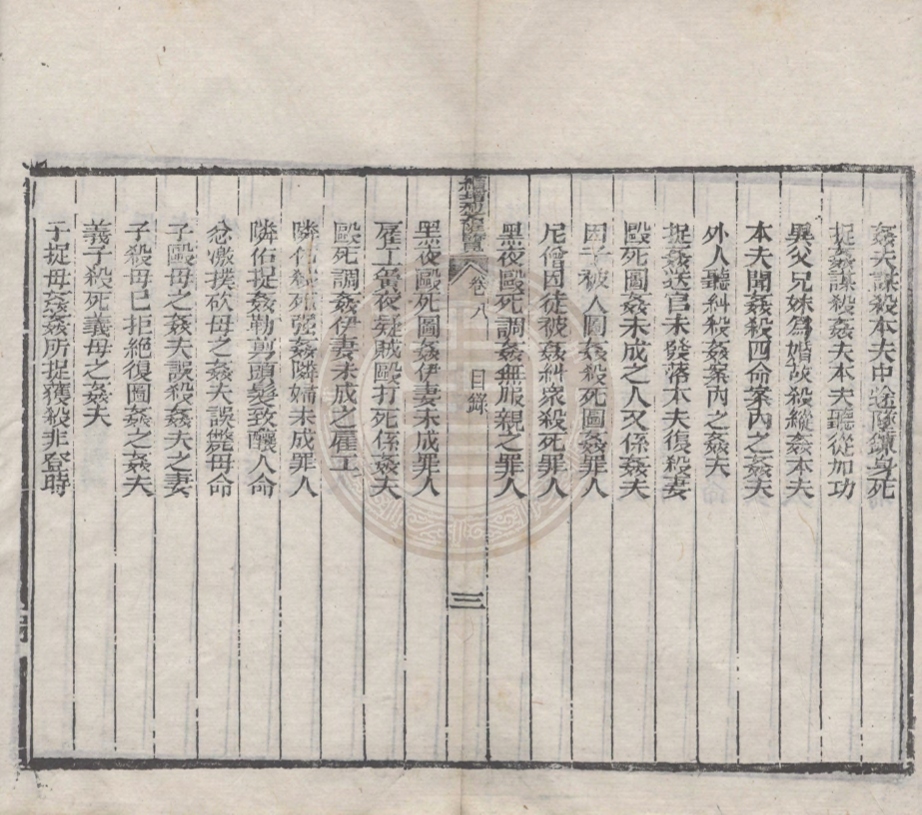 姦夫謀殺本夫中途墜𡓏身死
捉姦謀殺姦夫本夫聽從加功
異父兄妹爲婚故殺縱姦本夫
本夫聞姦殺四命案內之姦夫
外人聽糾殺姦案內之姦夫
捉姦送官未發落本夫復殺妻
毆死圖姦未成之人又係姦夫
因子被人圖姦殺死圖姦罪人
尼僧因徒被姦糾衆殺死罪人
黑夜毆死調姦無服親之罪人
卷八
目錄
三
黑夜毆死圖姦伊妻未成罪人
雇工黉夜疑賊毆打死係姦夫
毆死調姦伊妻未成之雇工
隣佑殺死强姦隣婦未成罪人
隣佑捉姦勒剪頭髮致釀人命
忿激撲砍母之姦夫誤斃母命
子毆母之姦夫誤殺姦夫之妻
子殺母已拒絕復圖姦之姦夫
義子殺死義母之姦夫
子捉母姦姦所捉獲殺非登時